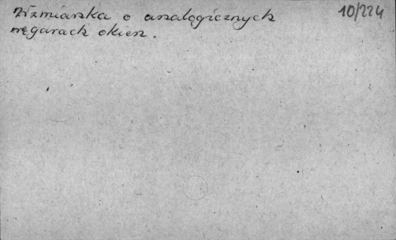 Wzmianka o analogicznych 10/224
węgarach okien.